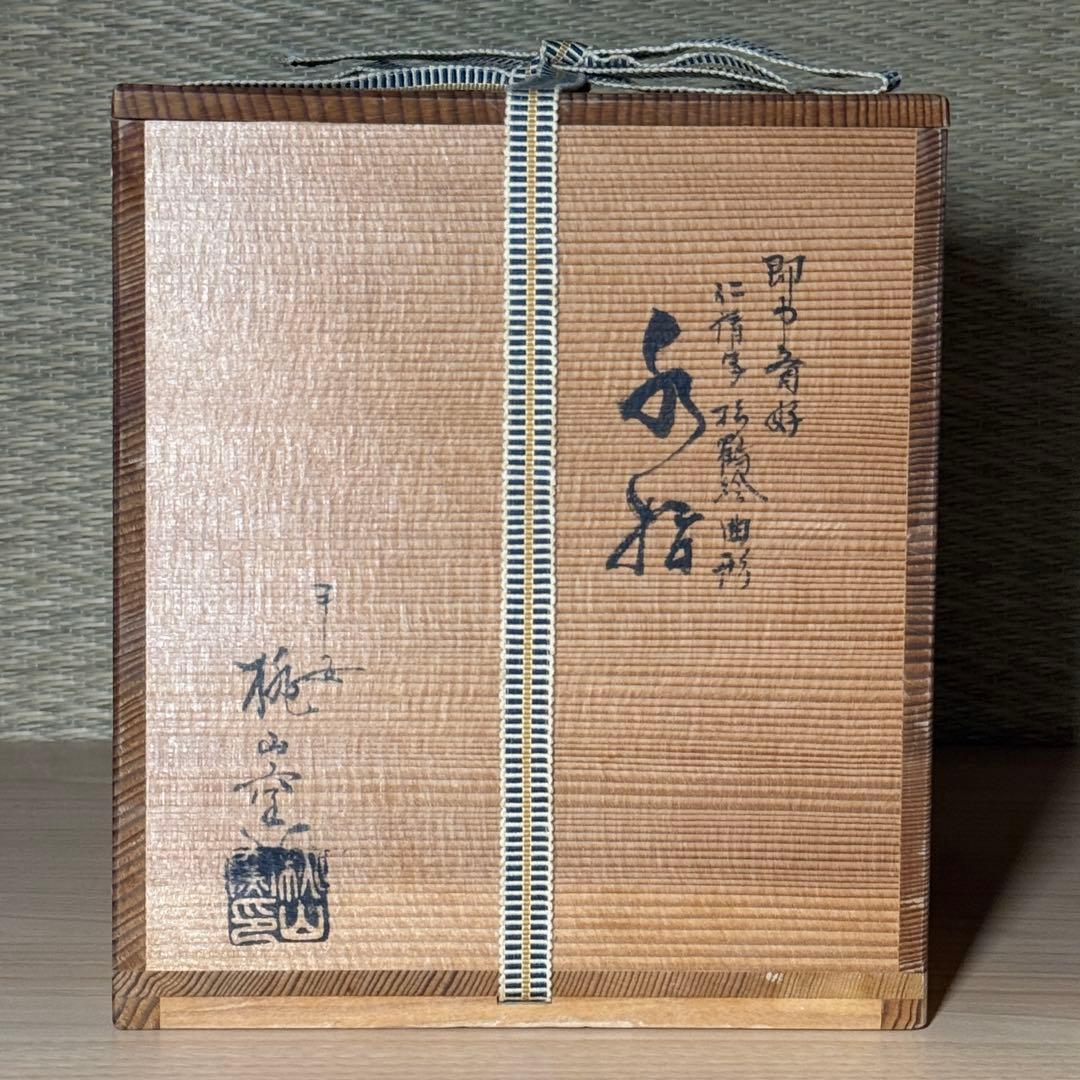 即中斎好
仁清写 松鶴絵 曲形
水指
平安
桃山窯